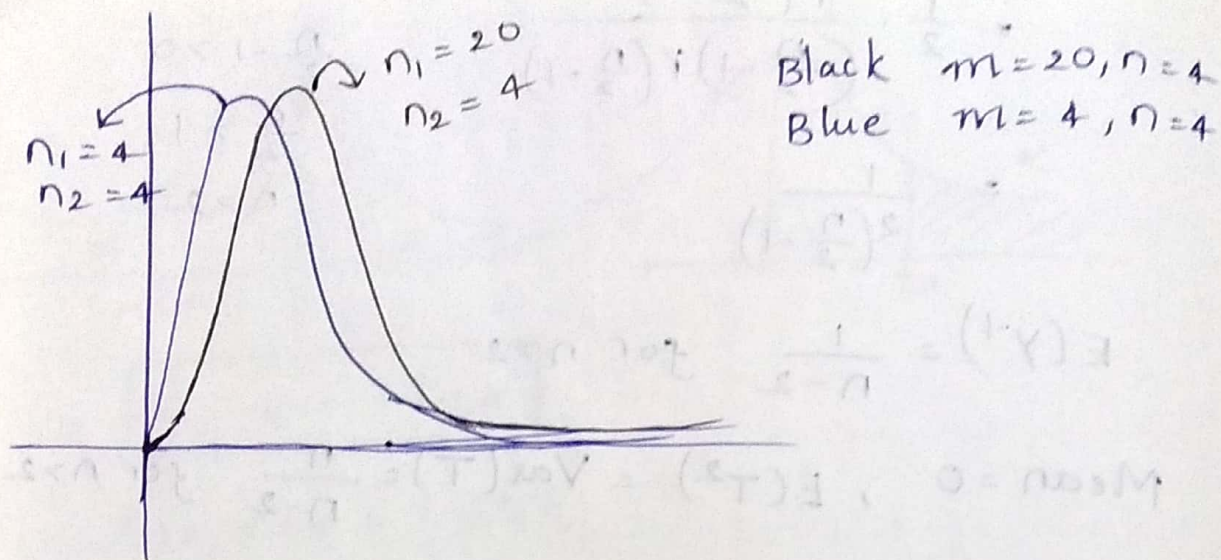 n₁ = 20
n₂ = 4
n₁ = 4
n₂ = 4
Black m = 20, n = 4
Blue m = 4, n = 4